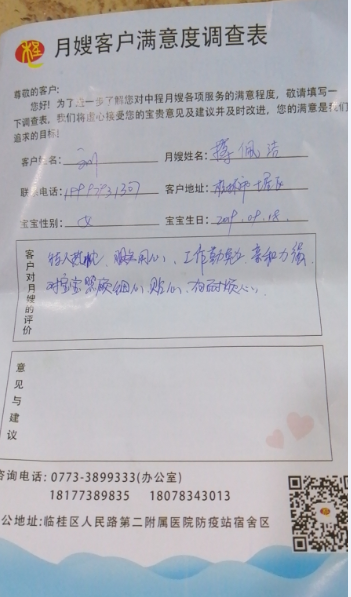 月嫂客户满意度调查表
尊敬的客户:
您好! 为了进一步了解您对中程月嫂各项服务的满意程度, 敬请填写一
下调查表, 我们将虚心接受您的宝贵意见及建议并及时改进, 您的满意是我们
追求的目标!
客户姓名: 刘 月嫂姓名: 蒋佩洁
联系电话: 客户地址:
宝宝性别: 女 宝宝生日: 2019.09.18.
客户对月嫂的评价
待人热忱、服务用心、工作勤勉、亲和力强、
对宝宝照顾细心贴心、有耐烦心。
意见与建议
咨询电话: 0773-3899333(办公室)
18177389835 18078343013
公地址:临桂区人民路第二附属医院防疫站宿舍区